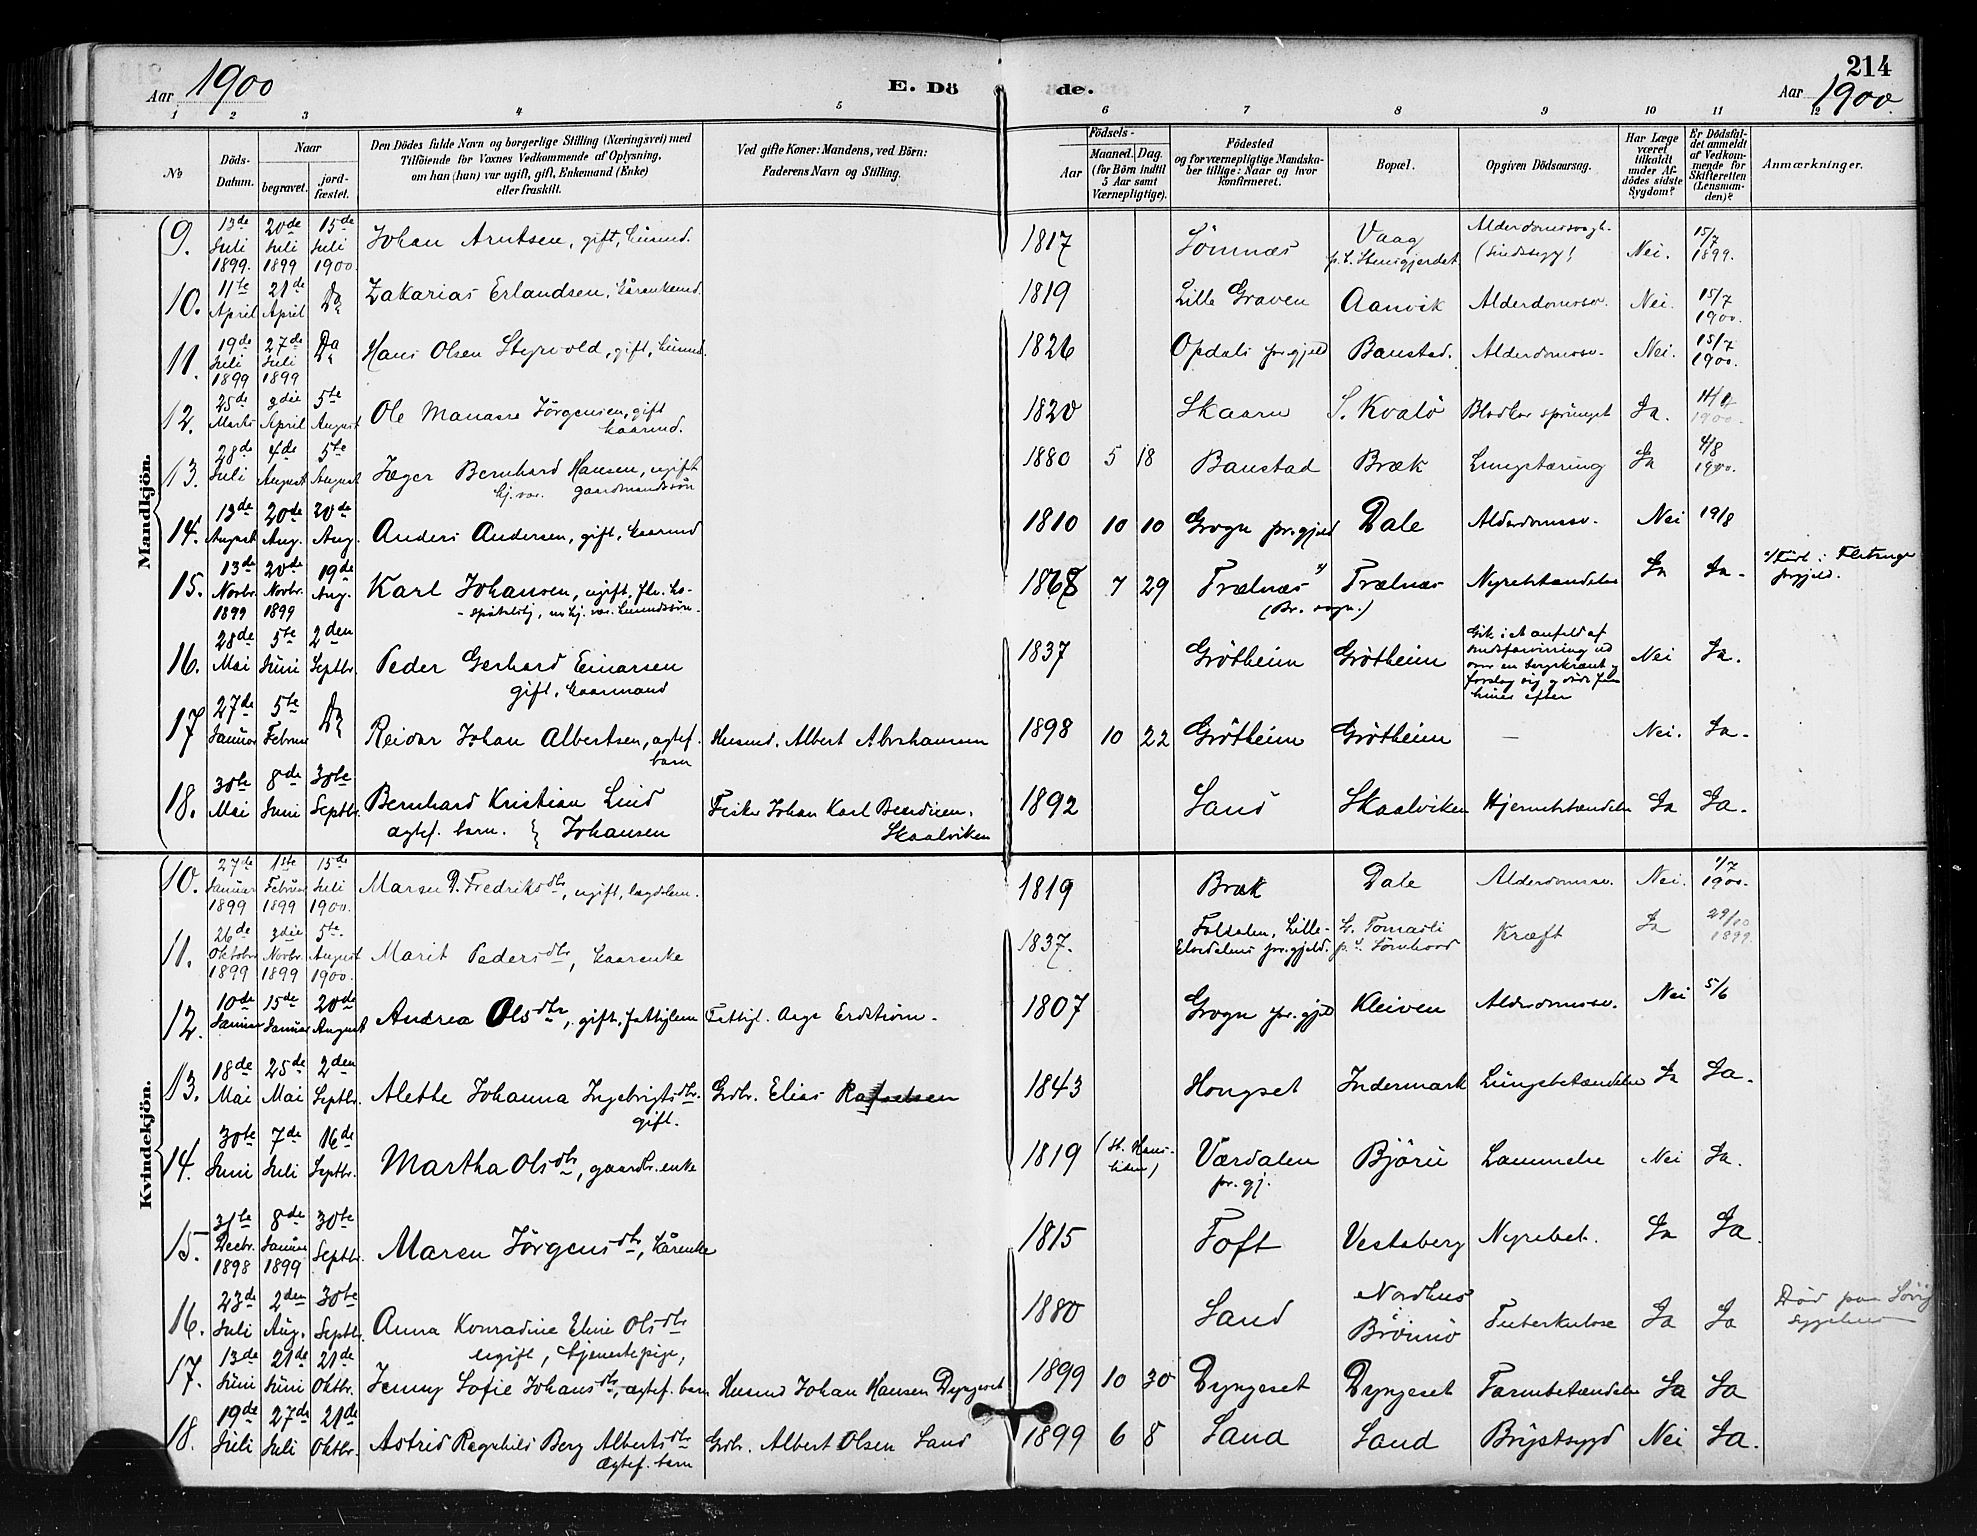 214
Aar 1900
E. Dö de.
Aar 1900
1 2 3 4 5 6 7 8 9 10 11 12
No
Döds-Datum.
Naar
begravet.
jord-fæstet.
Den Dödes fulde Navn og borgerlige Stilling (Næringsvei) med
Tilföiende for Voxnes Vedkommende af Oplysning,
om han (hun) var ugift, gift, Enkemand (Enke)
eller fraskilt.
Ved gifte Koner: Mandens, ved Börn:
Faderens Navn og Stilling.
Födsels-
Aar
Maaned. Dag.
(for Börn indtil
5 Aar samt
Værnepligtige).
Födested
og for værnepligtige Mandska-
ber tillige: Naar og hvor
konfirmeret.
Bopæl.
Opgiven Dödsaarsag.
Har Læge
været
tilkaldt
under Af-
dödes sidste
Sygdom?
Er Dödsfal-
det anmeldt
af Vedkom-
mende for
Skifteretten
(Lensman-
den)?
Anmærkninger.
Mandkjön.
9. 13de Juli 1899. 20de Juli 1899 15de Juli 1900. Johan Arntsen, gift, husmd. 1817 Sömnæs Vaag Nei. 15/7 1899.
10. 11te April 21de April Do Zakarias Erlandsen, kårenkemd. 1819 Lille Graven Aanvik Alderdomssv. Nei. 15/7 1900.
11. 19de Juli 1899 27de Juli 1899 Do Hans Olsen Styrvold, gift, husmd. 1826 Opdals pr.gjeld Baustad. Alderdomssv. Nei. 15/7 1900.
12. 25de Marts 3die April 5te August Ole Manasse Jörgensen, gift kaarmd. 1820 Skaarn S. Kvalö Blodkar sprunget Ja. 1900.
13. 28de Juli 4de August 5te August Jæger Bernhard Hansen, ugift hj.vær. gaardmandssön 1880 5 18 Baustad Bræk Lungetæring Ja 4/8 1900.
14. 13de August 20de Aug. 20de Aug. Anders Andersen, gift, kaarmd 1810 10 10 Grogn pr.gjeld Dale Alderdomssv. Nei 19/8
15. 13de Novbr. 1899 20de Novbr. 1899 19de Aug. Karl Johansen, ugift, 1867 7 29 Trælnæs (Br. sogn.) Trælnæs Nyrebetændelse Ja Ja.
16. 28de Mai 5te Juni 2den Septbr. Peder Gerhard Einarsen gift, kaarmand 1837 Grötheim Grötheim Gik i et anfald af sindsforvirring ud over en bergskrænt Nei Ja.
17 27de Januar 5te Februar Do Reidar Johan Albertsen, ægtef. barn Husmd. Albert Abrahamsen 1898 10 22 Grötheim Grötheim — Nei. Ja.
18. 30te Mai 8de Juni 30te Septbr. Bernhard Kristian Lind Johansen ægtef. barn. Fisker Johan Karl Skaalviken 1892 Sand Skaalviken Hjernebetændelse Ja Ja.
Kvindekjön.
10. 27de Januar 1899 1ste Februar 1899 15de Juli 1900. Maren D. Fredriksdtr, ugift, lægdslem. 1819 Bræk Dale Alderdomssv. Nei. 1/7 1900.
11. 26de Oktober 1899 3die Novbr. 1899 5te August 1900. Marit Pedersdtr, kaarenke 1837. Foldalen, Lille-Elvedalens pr.gjeld. Kræft Ja 1899.
12. 10de Januar 15de Januar 20de August Andrea Olsdtr, gift, fattiglem Fattigl. Aage Erdstrøm. 1807 Grogn pr.gjld Kleiven Alderdomssv. Nei 5/6
13. 18de Mai 25de Mai 2den Septbr. Alethe Johanna Ingebrigtsdtr. gift. Grdbr. Elias 1843 Hongset Indermark Lungebetændelse Ja Ja.
14. 30te Juni 7de Juli 16de Septbr. Martha Olsdtr, gaardbr. enke 1819 Værdalen pr.gj. Bjørn Lammelse Nei Ja.
15. 31te Decbr. 1898 8de Januar 1899 30te Septbr. Maren Jörgensdtr, kårenke 1815 Toft Vestaberg Nyrebet. Ja Ja.
16. 23de Juli 2den Aug. 30te Septbr. Anna Konradine Eline Olsdtr ugift, tjenestepige, 1880 Sand Nordhus Brönnö Tuberkulose Ja Ja Död paa Sövig sygehus
17. 13de Juni 21de Juni 21de Oktbr. Jenny Sofie Johansdtr, ægtef. barn Husmd Johan Hansen Dyngeset 1899 10 30 Dyngeset Dyngeset Tarmbetændelse Ja Ja
18. 19de Juli 27de Juli 21de Oktbr. Astrid Ragnhild Berg Albertsdtr ægtef. barn Grdbr. Albert Olsen Sand 1899 6 8 Sand Sand Brystsygd Nei Ja.